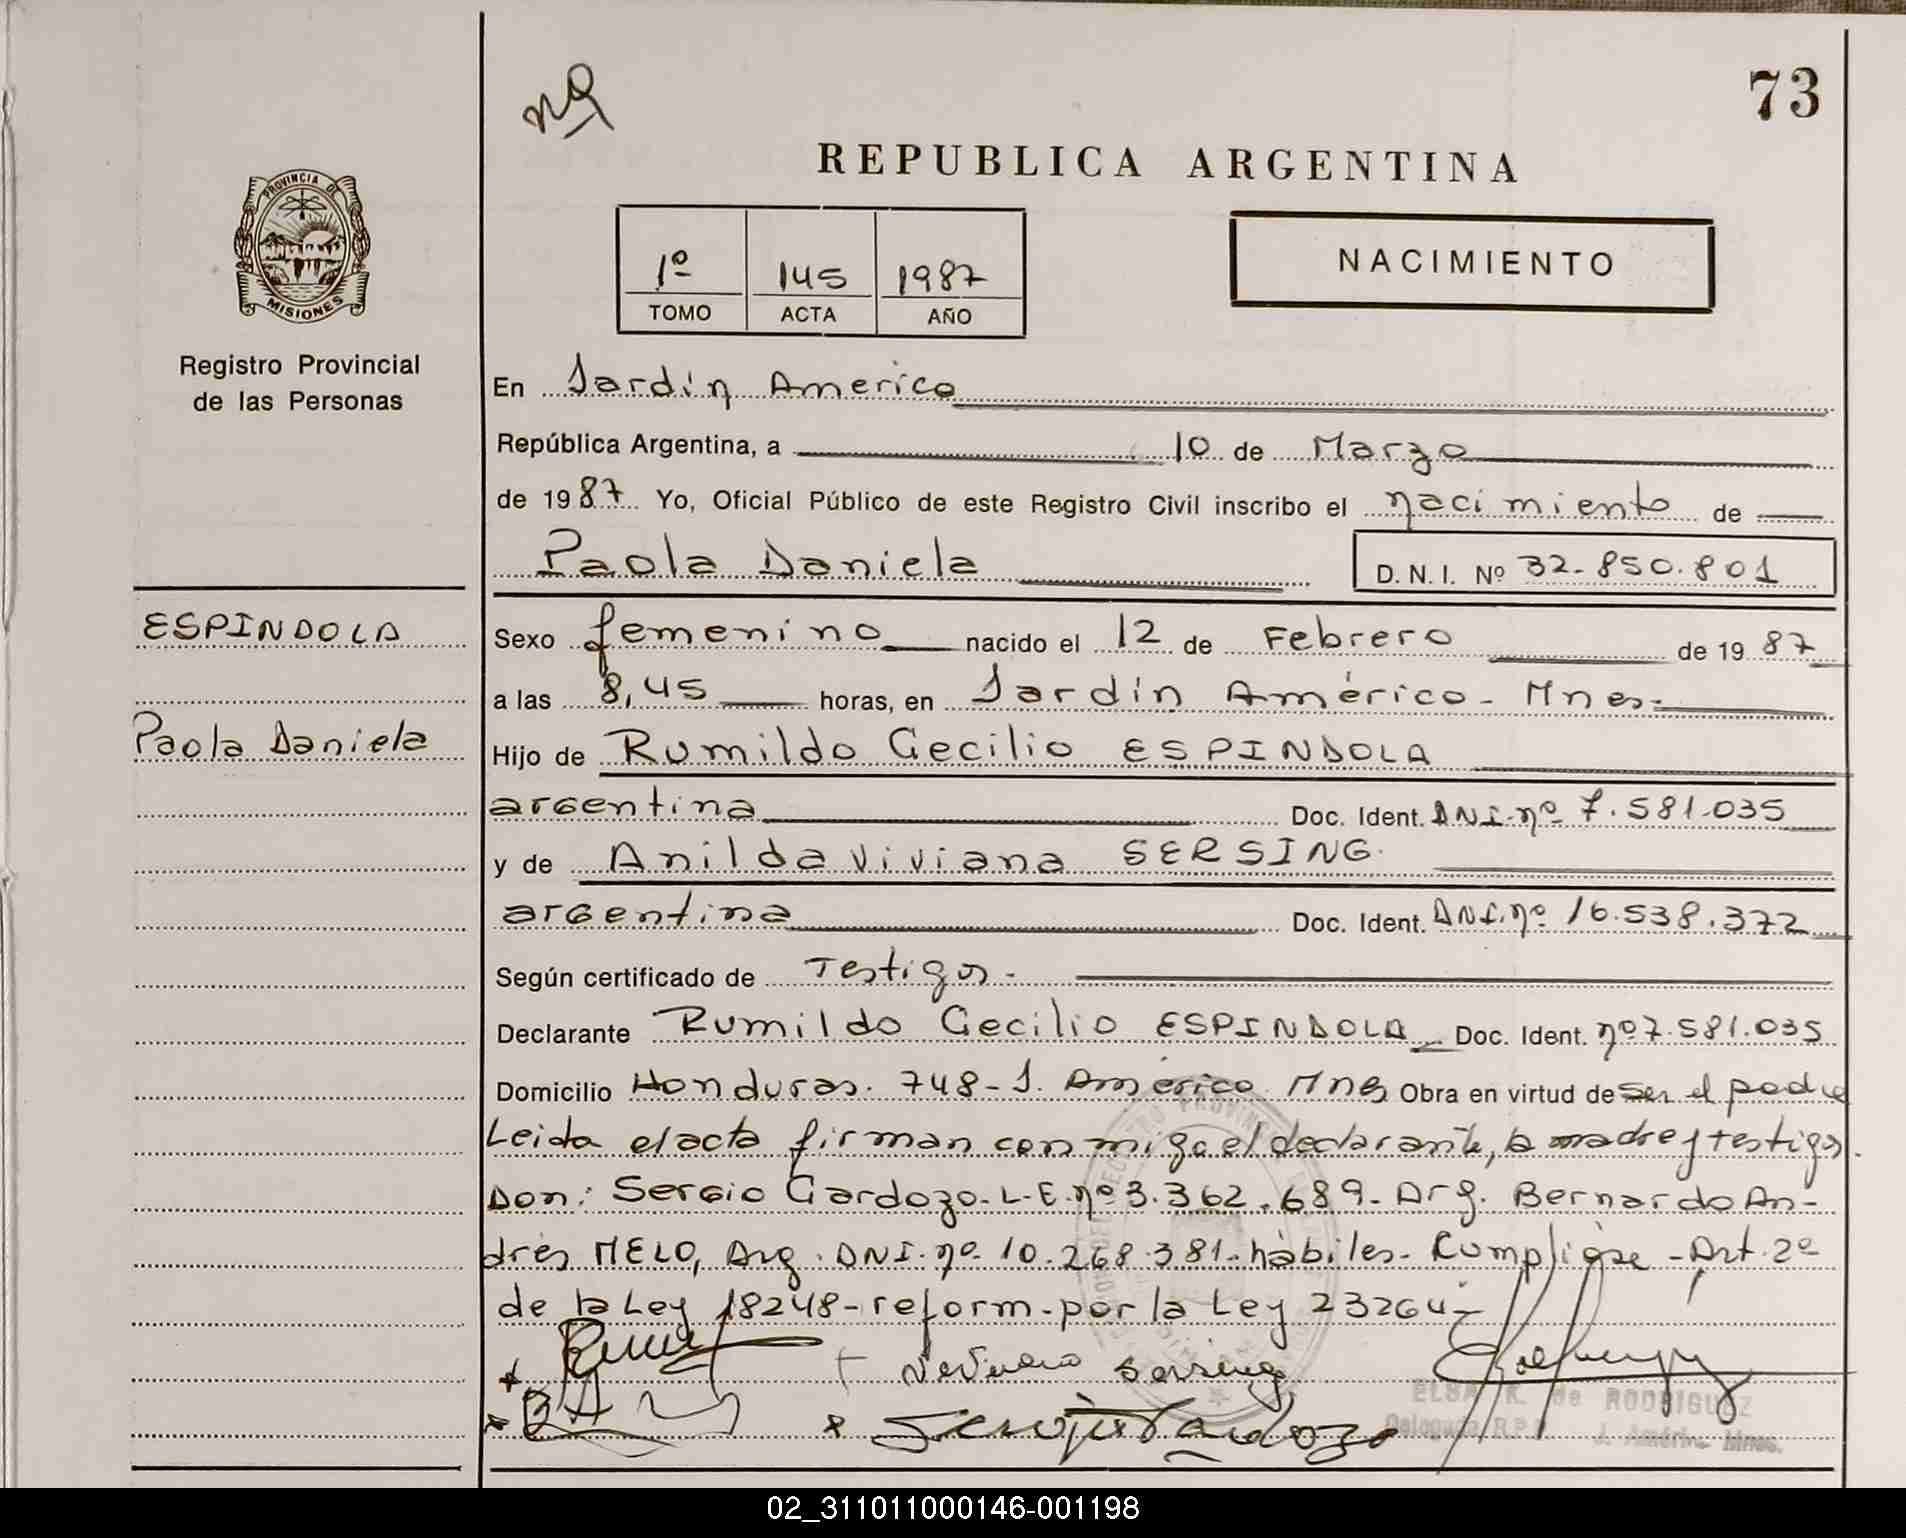 nº
73
REPUBLICA ARGENTINA
PROVINCIA DE
MISIONES
1º 145 1987
TOMO ACTA AÑO
NACIMIENTO
Registro Provincial
de las Personas
En Jardín America
República Argentina, a 10 de Marzo
de 1987 Yo, Oficial Público de este Registro Civil inscribo el nacimiento de
Paola Daniela D.N.I. Nº 32-850.801
ESPINDOLA
Paola Daniela
Sexo femenino nacido el 12 de Febrero de 1987
a las 8,45 horas, en Jardín América - Mnes-
Hijo de Rumildo Cecilio ESPINDOLA
argentina Doc. Ident. DNI-nº 7.581.035
y de Anilda Viviana SERSING.
argentina Doc. Ident. DNI.nº 16.538.372
Según certificado de Testigos-
Declarante Rumildo Cecilio ESPINDOLA Doc. Ident. nº7.581.035
Domicilio Honduras. 748-J. América Mnes Obra en virtud de ser el padre
Leida el acta firman conmigo el declarante, la madre y testigos.
Don: Sergio Cardozo-L-E-nº 3.362.689- Arg. Bernardo An-
drés MELO, Arg. DNI. nº 10.268.381-hàbiles- Art. 2º
de la Ley 18248-reform-por la Ley 23264-
Sersing
Cardozo
ELSA R. de RODRIGUEZ
Delegada R.P.P. J. Améri. Mnes.
02_311011000146-001198